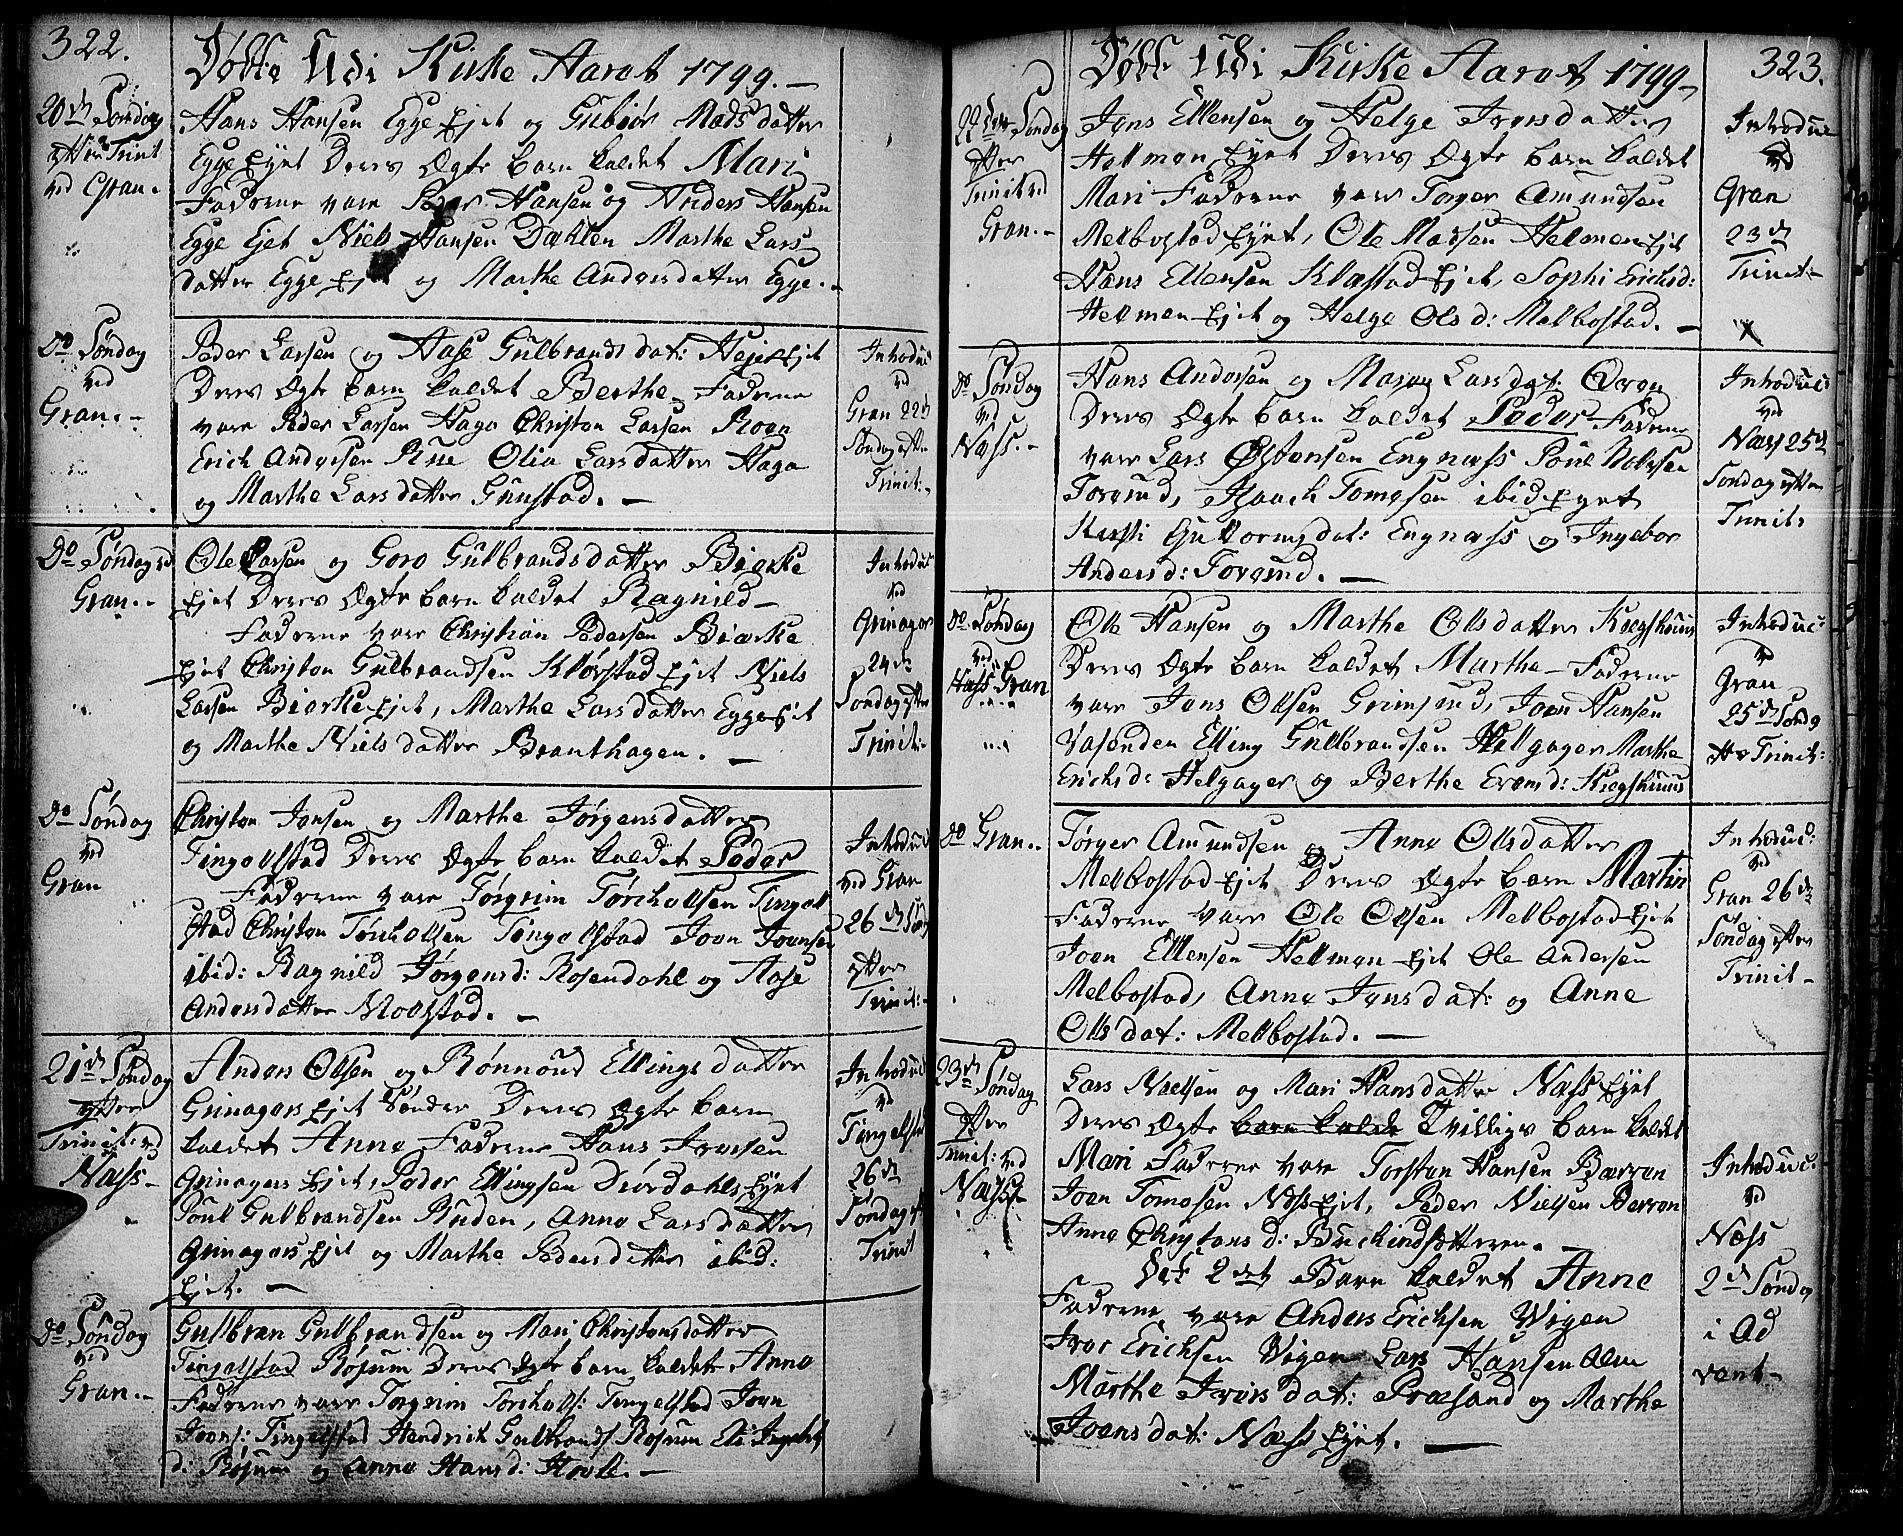 322.
Døbte Udi Kirke Aaret 1799. —
20de Søndag
efter Trinit
ved Gran.
Hans Hansen Egge Ejet og Gubiør Madsdatter
Egge Ejet Deres Ægte barn kaldet Mari
Fadderne vare Peder Hansen og Anders Hansen
Egge Ejet Niels Hansen Dæhlen Marthe Lars
datter Egge Ejet og Marthe Andersdatter Egge. —
Do Søndag
ved
Gran. —
Peder Larsen og Aase Gulbrandsdat: Hejer Ejet
Deres Ægte barn kaldet Berthe Fadderne
vare Peder Larsen Haga Christen Larsen Roen
Erich Andersen Rue Olia Larsdatter Haga
og Marthe Larsdatter Gunstad. —
Introduc
ved
Gran 22de
Søndag efter
Trinit: —
Do Søndag ved
Gran. —
Ole Larsen og Goro Gulbrandsdatter Biørke
Ejet Deres Ægte barn kaldet Ragnild —
Fadderne vare Christian Pedersen Biørke
Ejet Christen Gulbrandsen Klørstad Ejet Niels
Larsen Biørke Ejet, Marthe Larsdatter Egge Ejet
og Marthe Nielsdatter Branthagen. —
Introduc
ved
Grinager
24de
Søndag efter
Trinit: —
Do Søndag
ved
Gran
Christen Jensen og Marthe Jørgensdatter
Tingelstad Deres Ægte barn kaldet Peder
Fadderne vare Torgrim Torchelsen Tingel
stad Christen Torchelsen Tingelstad Joen Joensen
ibid: Ragnild Jørgensd: Rosendahl og Aase
Andersdatter Molstad. —
Introduc
ved Gran
26de Søn
efter
Trinit: —
21de Søndag
efter
Trinit: ved
Næss —
Anders Olsen og Rønnoud Ellingsdatter
Grinagers Ejet Søndre Deres Ægte barn
kaldet Anne Fadderne Hans Iversen
Grinagers Ejet, Peder Ellingsen Diørdahls Ejet
Poul Gulbrandsen Ruden, Anne Larsdatter
Grinagers Ejet og Marthe Pedersdatter ibid:
Ejet. —
Introduc
ved
Tingelstad
26de
Søndag ef
Trinit
Do Søndag
ved
Gran. —
Gulbran Gulbrandsen og Mari Christensdatter
Tingelstad Røsum Deres Ægte barn kaldet Anne
Fadderne vare Torgrim Torchels: Tingelstad Joen
Joens: Tingelstad Hendrich Gulbrands Røsum Eli
d: Røsum og Anne Hansd: Hvale. —
323.
Døbte Udi Kirke Aaret 1799 —
22de Søndag
efter
Trinit ved
Gran. —
Jens Ellensen og Helge Iversdatter
Helmen Ejet Deres Ægte barn kaldet
Mari Fadderne vare Torger Amundsen
Melbostad Ejet, Ole Madsen Helmen Ejet
Hans Ellensen Klæstad Ejet, Sophi Erichsd:
Helmen Ejet og Helge Olsd: Melbostad. —
Introduc
ved
Gran
23de
Trinit —
Do Søndag
ved
Næss. —
Hans Andersen og Larsdat:
Deres Ægte barn kaldet Peder Fadderne
vare Lars Østensen Engnæss Poul Nielsen
Torgund, Isaach Tomesen ibid Ejet
Kirsti Guttormsdat: Engnæss og Ingebor
Andersd: Torgund. —
Introduc:
ved
Næss 25de
Søndag efter
Trinit:
Do Søndag
ved
Næss Gran
Ole Hansen og Marthe Olsdatter Kiegshuus
Deres Ægte barn kaldet Marthe — Fadderne
vare Jens Olsen Grimsrud, Joen Hansen
Vasenden Elling Gulbrandsen Helgager Marthe
Erichsd: Helgager og Berthe Evensd: Kiegshuus
Introduc:
ved
Gran
25de Søndg
efter Trinit:
Do Gran. —
Torger Amundsen og Anne Olsdatter
Melbostad Ejet Deres Ægte barn Martin
Fadderne vare Ole Olsen Melbostad Ejet
Joen Ellensen Helmen Ejet Ole Andersen
Melbostad, Anne Jensdat: og Anne
Olsdat: Melbostad. —
Introduc:
ved
Gran 26de
Søndag efter
Trinit —
23de Søndag
efter
Trinit: ved
Næss
Lars Nielsen og Mari Hansdatter Næss Ejet
Deres Ægte barn kalde Tvillige barn kaldet
Mari Fadderne vare Torsten Hansen Berven
Joen Tomesen Næss Ejet, Peder Nielsen Berven
Anne Christens d: —
Det 2det Barn kaldet Anne
Fadderne vare Anders Erichsen Wigen
Iver Erichsen Wigen Lars Hansen Alm
Marthe Iversdat: Præsand og Marthe
Joensdat: Næss Ejet. —
Introduc:
ved
Næss
2de Søndag
i Ad
vent —